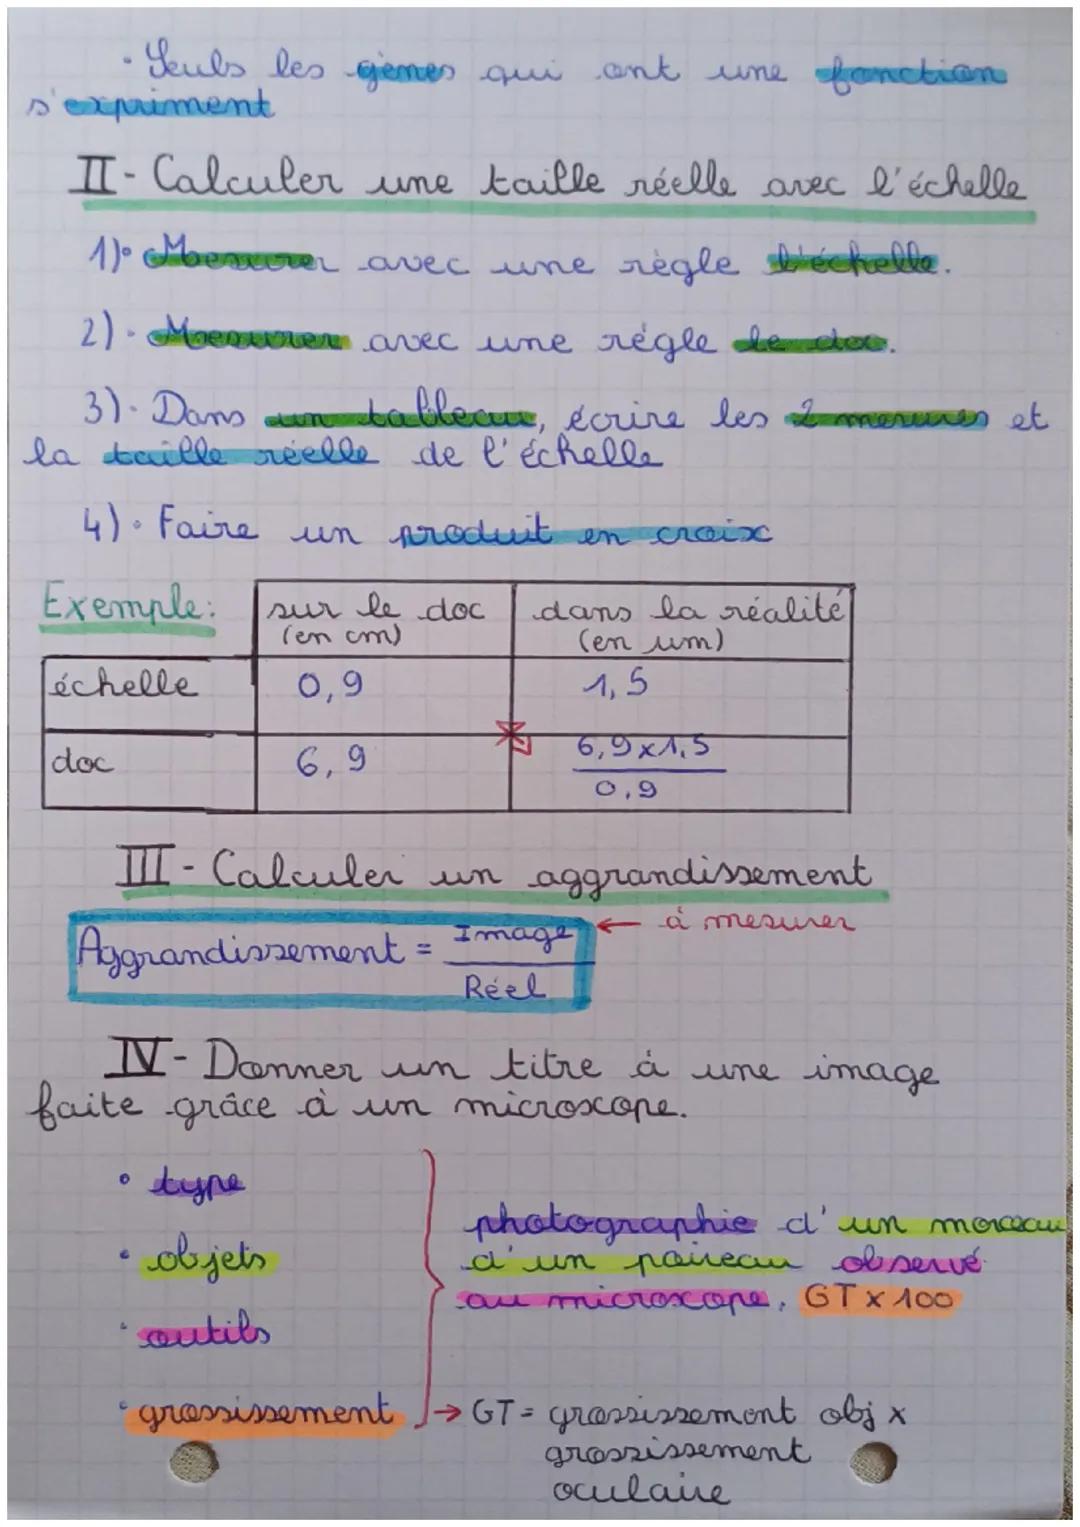 • Seuls les gènes qui ont une fonction
s'expriment
II - Calculer une taille réelle avec l'échelle
1)• Mesurer avec une règle l'échelle.
2)• Mesurer avec une règle le doc.
3)• Dans un tableau, écrire les 2 mesures et
la taille réelle de l'échelle
4)• Faire un produit en croix
Exemple:
sur le doc (en cm)
dans la réalité (en um)
échelle 0,9 1,5
doc 6,9 6,9x1,5
0,9
III - Calculer un aggrandissement
Aggrandissement = Image
Réel
← à mesurer
IV - Donner un titre à une image
faite grâce à un microscope.
• type
• objets
• outils
• grossissement
photographie d'un morceau
d'un poireau observé
au microscope. GT x 100
→ GT = grossissement obj x
grossissement
oculaire